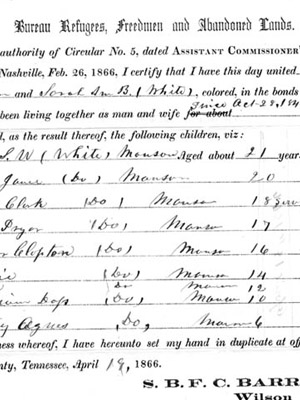 Bureau Refugees, Freedmen and Abandoned Lands.
authority of Circular No. 5, dated ASSISTANT COMMISSIONER'
Nashville, Feb. 26, 1866, I certify that I have this day united
and Sarah Ann B. (White), colored, in the bonds
been living together as man and wife for about since Oct. 28, 18
d, as the result thereof, the following children, viz:
S. W (White) Manson Aged about 21 years
Jane (Do) Manson 20
Clark (Do) Manson 18
Pryor (Do) Manson 17
Clopton (Do) Manson 16
(Do) Manson 14
Do Manson 12
Doss (Do) Manson 10
Agnes (Do, Manson 6
ness whereof, I have hereunto set my hand in duplicate at off
nty, Tennessee, April 19, 1866.
S. B. F. C. BARR
Wilson